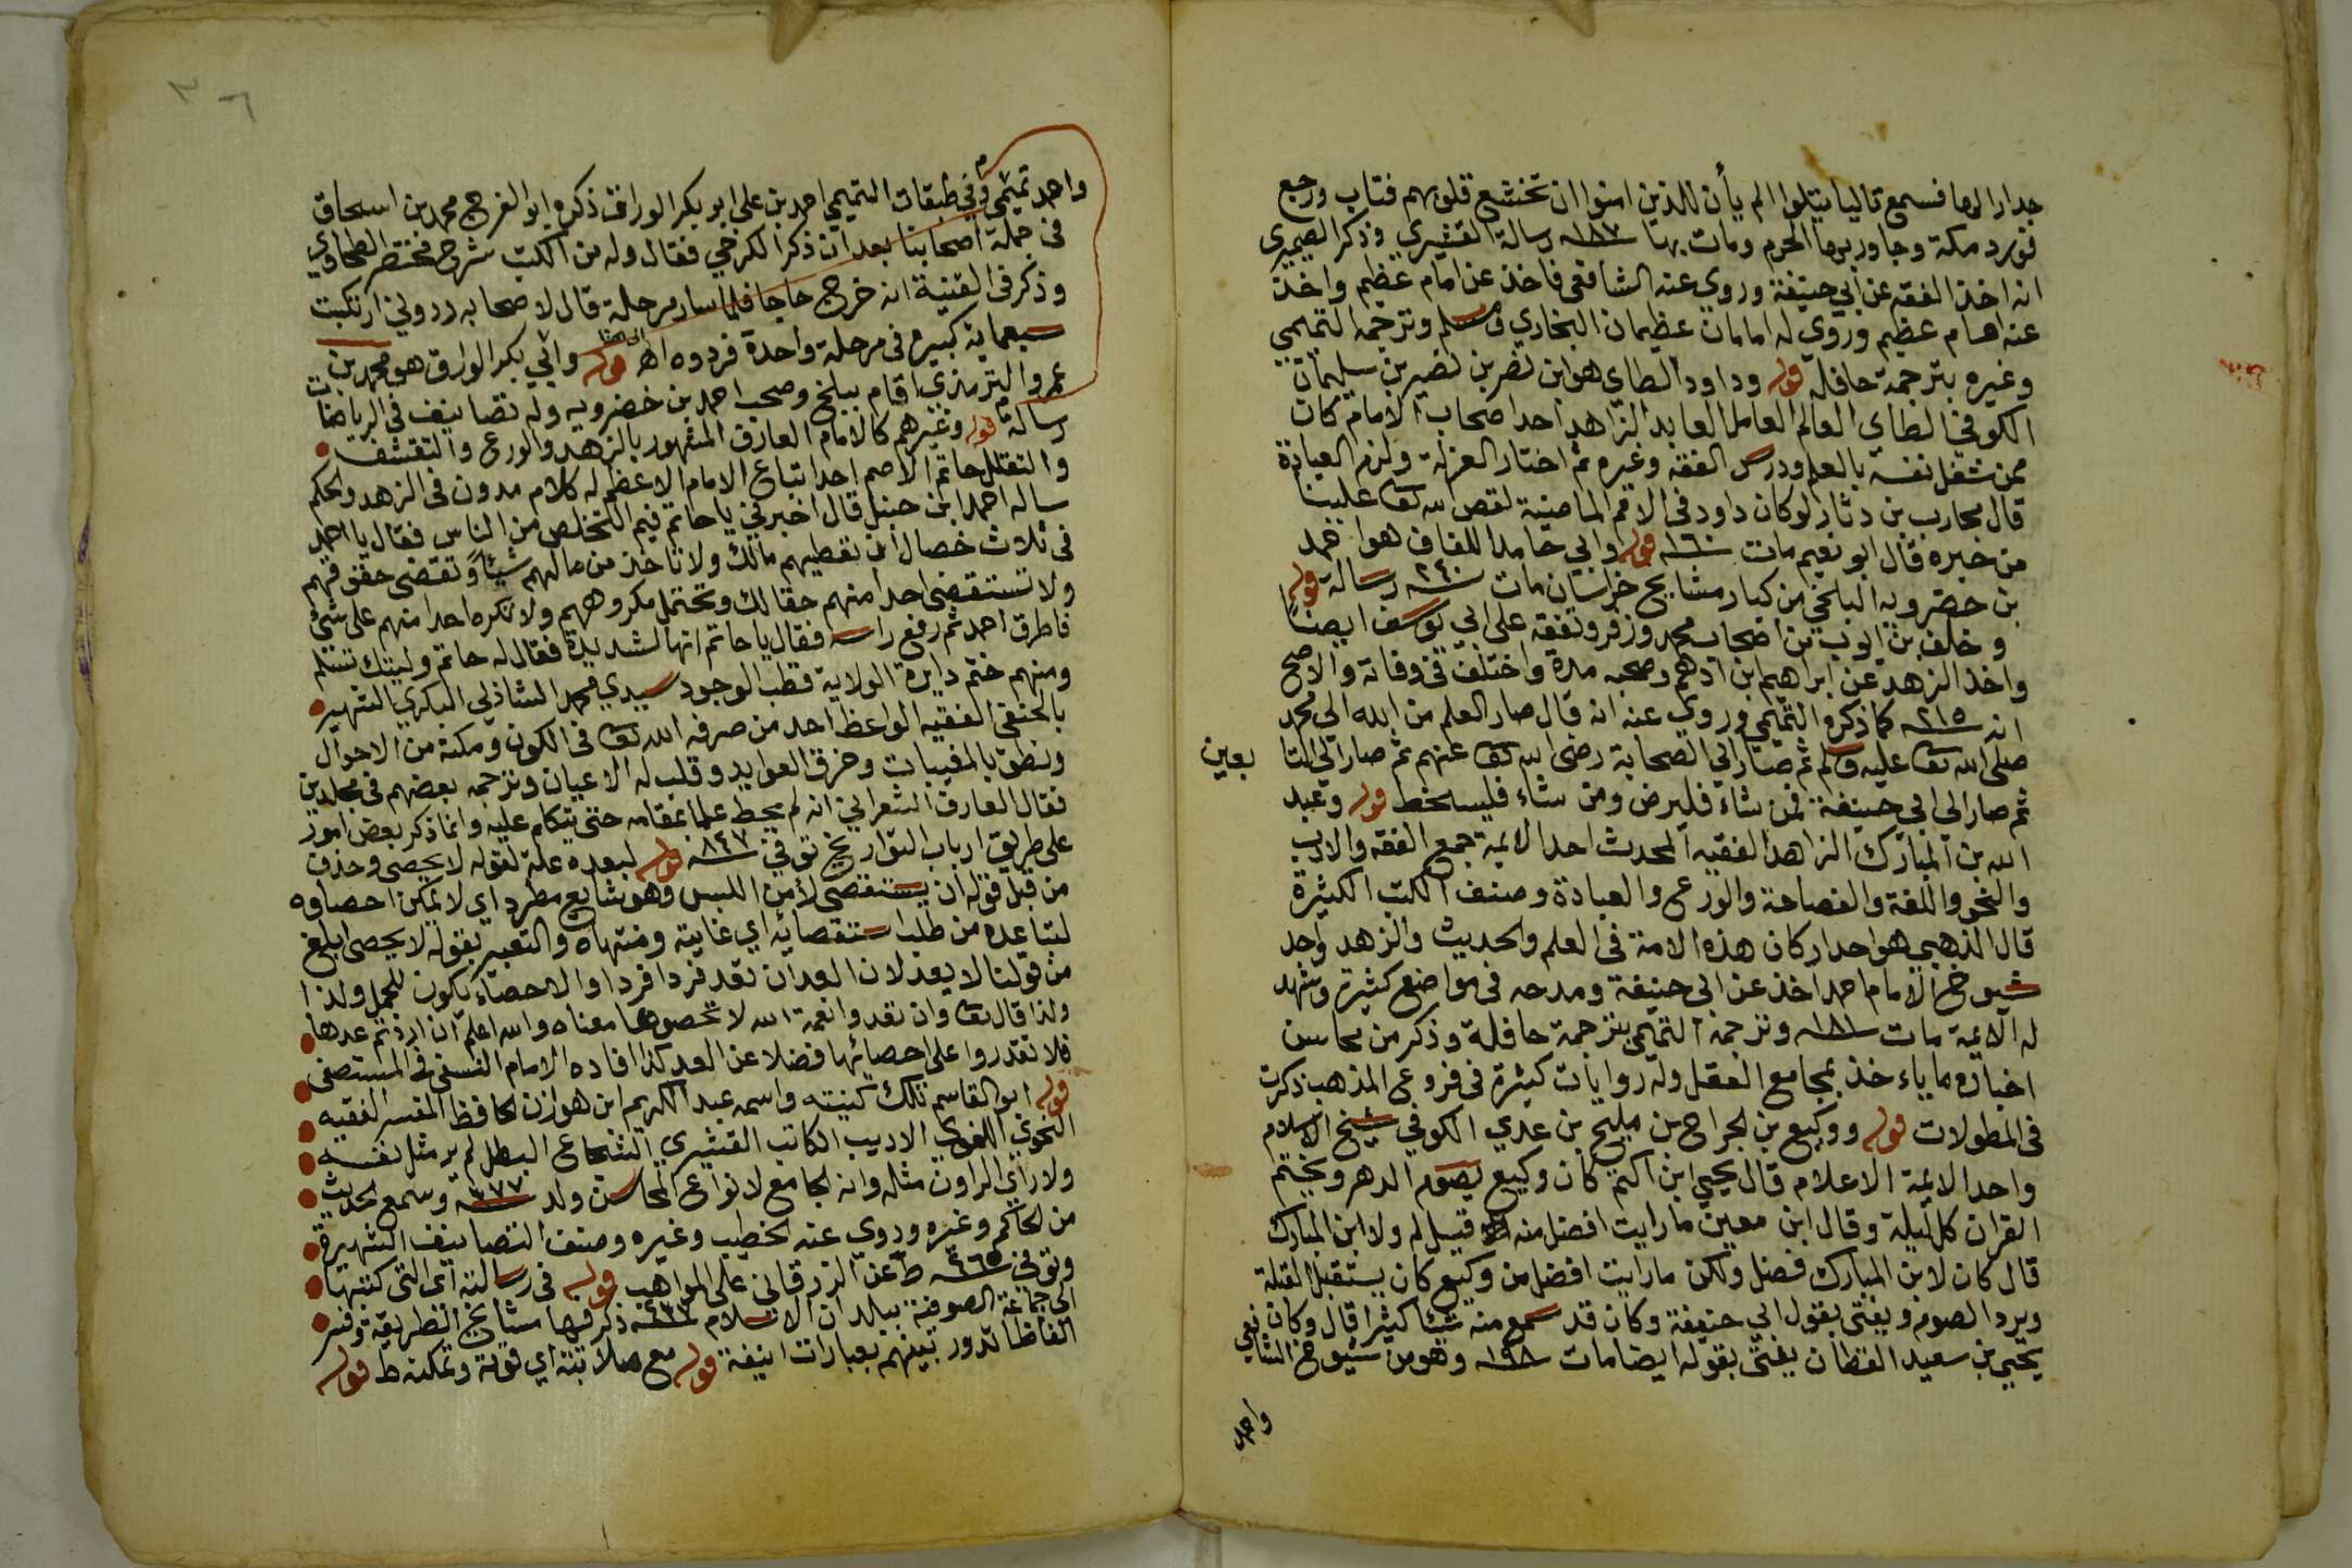 جدارا لها فسمع تاليا يتلوا الم يأن للذين امنوا ان تخشع قلوبهم فتاب ورجع
فورد مكة وجاور بها الحرم ومات بها سنة ١٨٧ رسالة القشيري وذكر الصيمري
انه اخذ الفقه عن ابي حنيفة وروي عنه الشافعي فاخذ عن امام عظيم واخذ
عنه امام عظيم وروي له امامان عظيمان البخاري ومسلم وترجمه التميمي
وغيره بترجمة حافلة قوله وداود الطاي هو ابن نضر بن نصير بن سليمان
الكوفي الطاي العالم العامل العابد الزاهد احد اصحاب الامام كان
ممن شغل نفسه بالعلم ودرس الفقه وغيره ثم اختار العزلة ولزم العبادة
قال محارب بن دثار لو كان داود في الامم الماضية لقص الله تعا علينا
من خبره قال ابو نعيم مات سنة ١٦٠ قوله وابي حامد اللفاف هو احمد
بن خضرويه البلخي من كبار مشايخ خراسان مات سنة ٢٤٠ رسالة قوله
وخلف بن ايوب من اصحاب محمد وزفر وتفقه على ابي يوسف ايضا
واخذ الزهد عن ابراهيم ابن ادهم وصحبه مدة واختلف في وفاته والاصح
انه سنة ٢١٥ كما ذكره التميمي وروي عنه انه قال صار العلم من الله الى محمد
صلى الله تعا عليه وسلم ثم صار الى الصحابة رضى الله تعا عنهم ثم صار الى التا
بعين
ثم صار الى ابي حنيفة فمن شاء فليرض ومن شاء فليسخط قوله وعبد
الله بن المبارك الزاهد الفقيه المحدث احد الائمة جمع الفقه والادب
والنحو واللغة والفصاحة والورع والعبادة وصنف الكتب الكثيرة
قال الذهبي هو احد اركان هذه الامة في العلم والحديث والزهد واحد
شيوخ الامام احمد اخذ عن ابي حنيفة ومدحه في مواضع كثيرة وشهد
له الائمة مات سنة ١٨١ وترجمه التميمي بترجمة حافلة وذكر من محاسن
اخباره ما ياءخذ بمجامع العقل وله روايات كثيرة في فروع المذهب ذكرت
في المطولات قوله ووكيع بن الجراح بن مليح بن عدي الكوفي شيخ الاسلام
واحد الائمة الاعلام قال يحيى ابن اكثم كان وكيع يصوم الدهر ويختم
القران كل ليلة وقال ابن معين ما رايت افضل منه قيل له ولا ابن المبارك
قال كان لابن المبارك فضل ولكن ما رايت افضل من وكيع كان يستقبل القبلة
ويرد الصوم ويفتى بقول ابي حنيفة وكان قد سمع منه شيئا كثيرا قال وكان
يحيى بن سعيد القطان يفتى بقوله ايضا مات سنة ١٩٨ وهو من شيوخ الشافعي
واحمد
٣٦
واحمد تميمي وفي طبقات التميمي احمد بن علي ابو بكر الوراق ذكره ابو الفرج محمد بن اسحاق
في جملة اصحابنا بعد ان ذكر الكرخي فقال وله من الكتب شرح مختصر الطحاوي
وذكر في القنية انه خرج حاجا فلما سار مرحلة قال لاصحابه ردوني ارتكبت
سبعماية كبيرة في مرحلة واحدة فردوه اه قوله وابي بكر الوراق هو محمد بن
عمرو الترمذي اقام ببلخ وصحب احمد بن خضرويه وله تصانيف في الرياضات
رسالة قوله وغيرهم كالامام العارف المشهور بالزهد والورع والتقشف
والتقلل حاتم الاصم احد اتباع الامام الاعظم له كلام مدون في الزهد والحكم
ساله احمد ابن حنبل قال اخبرني يا حاتم فيم التخلص من الناس فقال يا احمد
في ثلاث خصال ان تعطيهم مالك ولا تاخذ من مالهم شيئا وتقضى حقوقهم
ولا تستقضى احدا منهم حقا لك وتحتمل مكروههم ولا تكره احدا منهم على شئ
فاطرق احمد ثم رفع راسه فقال يا حاتم انها لشديدة فقال له حاتم وليتك تسلم
ومنهم ختم دايرة الولاية قطب الوجود سيدي محمد الشاذلي البكري الشهير
بالحنفي الفقيه الواعظ احد من صرفه الله تعا في الكون ومكنه من الاحوال
ونطق بالمغيبات وخرق العوايد وقلب له الاعيان وترجمه بعضهم في مجلدين
فقال العارف الشعراني انه لم يحط علما بمقامه حتى يتكلم عليه وانما ذكر بعض امور
على طريق ارباب التواريخ توفي سنة ٨٤٧ قوله لبعده علة لقوله لا يحصى وحذف
من قبل قوله ان يستقصى لأمن اللبس وهو شايع مطرد اي لا يمكن احصاوه
لتباعده من طلب استقصائه اي غايته ومنتهاه والتعبير بقوله لا يحصى ابلغ
من قولنا لا يعد لان العد ان تعد فردا فردا والاحصاء يكون للجمل ولذا
ولذا قال تعا وان تعدوا نعمة الله لا تحصوها معناه والله اعلم ان اردتم عدها
فلا تقدروا على احصائها فضلا عن العد كذا افاده الامام النسفي في المستصفى
قوله ابو القاسم تلك كنيته واسمه عبد الكريم ابن هوازن الحافظ المفسر الفقيه
النحوي اللغوي الاديب الكاتب القشيري الشجاع البطل لم ير مثل نفسه
ولا راى الراون مثله وانه الجامع لانواع المحاسن ولد سنة ٣٧٧ وسمع الحديث
من الحاكم وغيره وروي عنه الخطيب وغيره وصنف التصانيف الشهيرة
وتوفي سنة ٤٦٥ ط عن الزرقاني على المواهب قوله في رسالته اى التى كتبها
الى جماعة الصوفية ببلدان الاسلام سنة ٤٣٧ ذكر فيها مشايخ الطريقة وفسر
الفاظا تدور بينهم بعبارات انيقة قوله مع صلابته اي قوته وتمكنه ط قوله